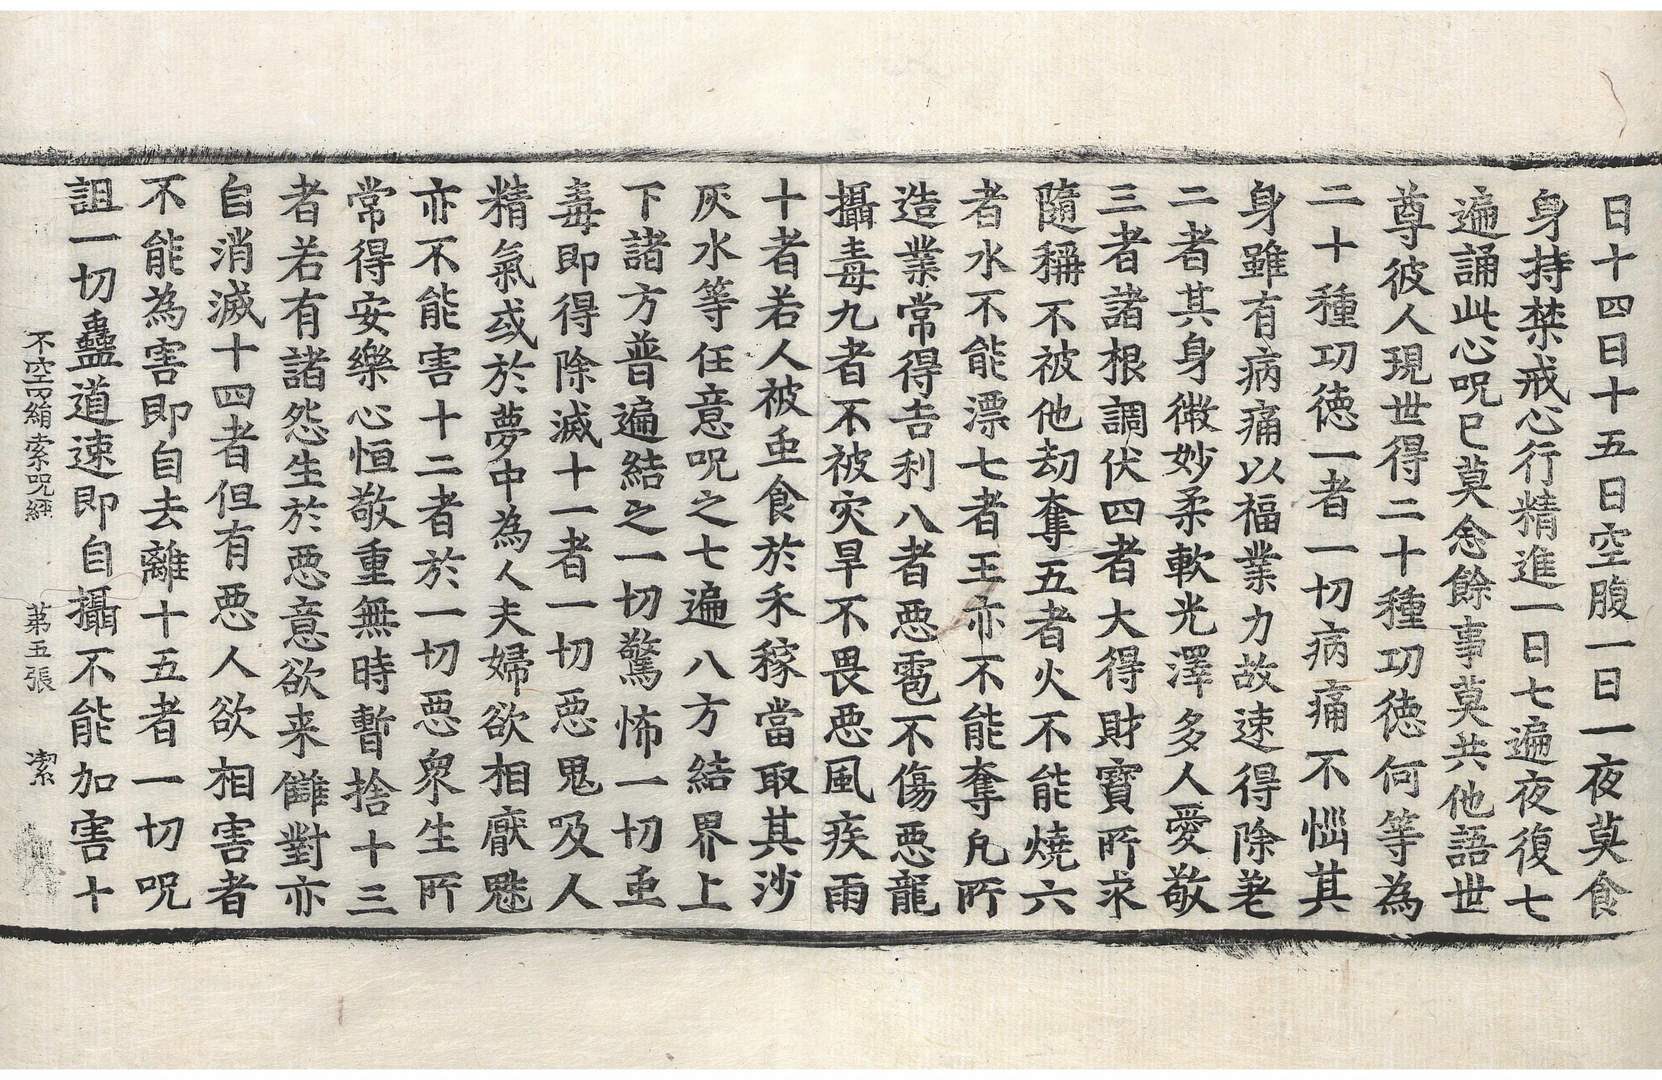 日十四日十五日空腹一日一夜莫食
身持禁戒心行精進一日七遍夜復七
遍誦此心呪已莫念餘事莫共他語世
尊彼人現世得二十種㓛徳何等為
二十種㓛徳一者一切病痛不惱其
身雖有病痛以福業力故速得除差
二者其身微妙柔軟光澤多人愛敬
三者諸根調伏四者大得財寶所求
隨稱不被他劫奪五者火不能燒六
者水不能漂七者王亦不能奪凡所
造業常得吉利八者惡雹不傷惡龍
攝毒九者不被灾旱不畏惡風疾雨
十者若人被䖝食於禾稼當取其沙
灰水等任意呪之七遍八方結界上
下諸方普遍結之一切驚怖一切䖝
毒即得除滅十一者一切惡鬼吸人
精氣或於夢中為人夫婦欲相厭魅
亦不能害十二者於一切惡衆生所
常得安樂心恒敬重無時暫捨十三
者若有諸怨生於惡意欲来讎對亦
自消滅十四者但有惡人欲相害者
不能為害即自去離十五者一切呪
詛一切蠱道速即自攝不能加害十
不空羂索呪經 苐五張 潔